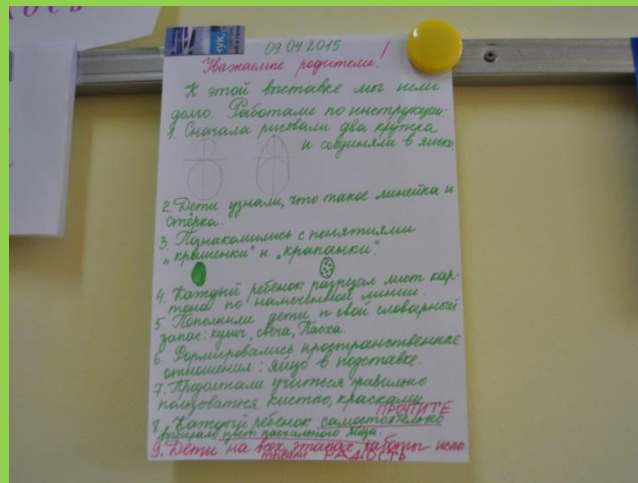 ОСЬ
09.04.2015
Уважаемые родители!
К этой выставке мы шли
долго. Работали по инструкции:
1. Сначала рисовали два кружка
и соединяли в яйцо
2. Дети узнали, что такое линейка и
стёрка.
3. Познакомились с понятиями
"крашенки" и "крапанки".
4. Каждый ребенок разрезал лист кар-
тона по намеченной линии.
5. Пополнили дети и свой словарный
запас: кулич, свеча, Пасха.
6. Формировались пространственные
отношения: яйцо в подставке.
7. Продолжали учиться правильно
пользоваться кистью, красками
ПРОЧТИТЕ
8. Каждый ребенок самостоятельно
выбирал цвет пасхального яйца.
9. Дети на всех этапах работы
РАДОСТЬ